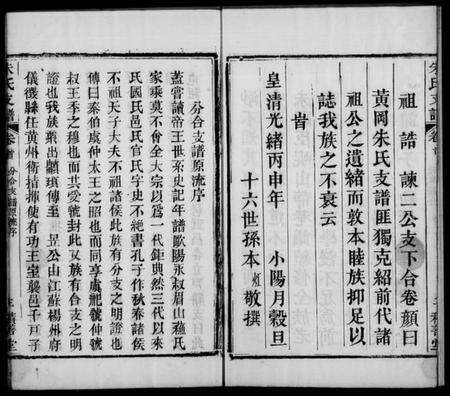 祖誥諫二公支下合卷顏曰
黃岡朱氏支譜匪獨克紹前代諸
祖公之遺緒而敦本睦族抑足以
誌我族之不衰云
旹
皇清光緒丙申年 小陽月穀旦
十六世孫本 敬撰
朱氏支譜 卷首
分合支譜原流序
蓋嘗讀帝王世系史記年譜歐陽永叔眉山蘓氏
家乘莫不會全大宗以爲一代鉅典然三代以來
氏國氏邑氏官氏字史不絕書孔子作春秋諸侯
不祖天子大夫不祖諸侯此族有分支之明證也
傳曰泰伯虞仲太王之昭也而同享虞虢號仲虢
叔王季之穆也而共愛號封此又族有合支之明
證也我族系出顓頊傳至 公由江蘇楊州府
儀徵縣任黃州衛指揮使有功王室襲邑千戶子